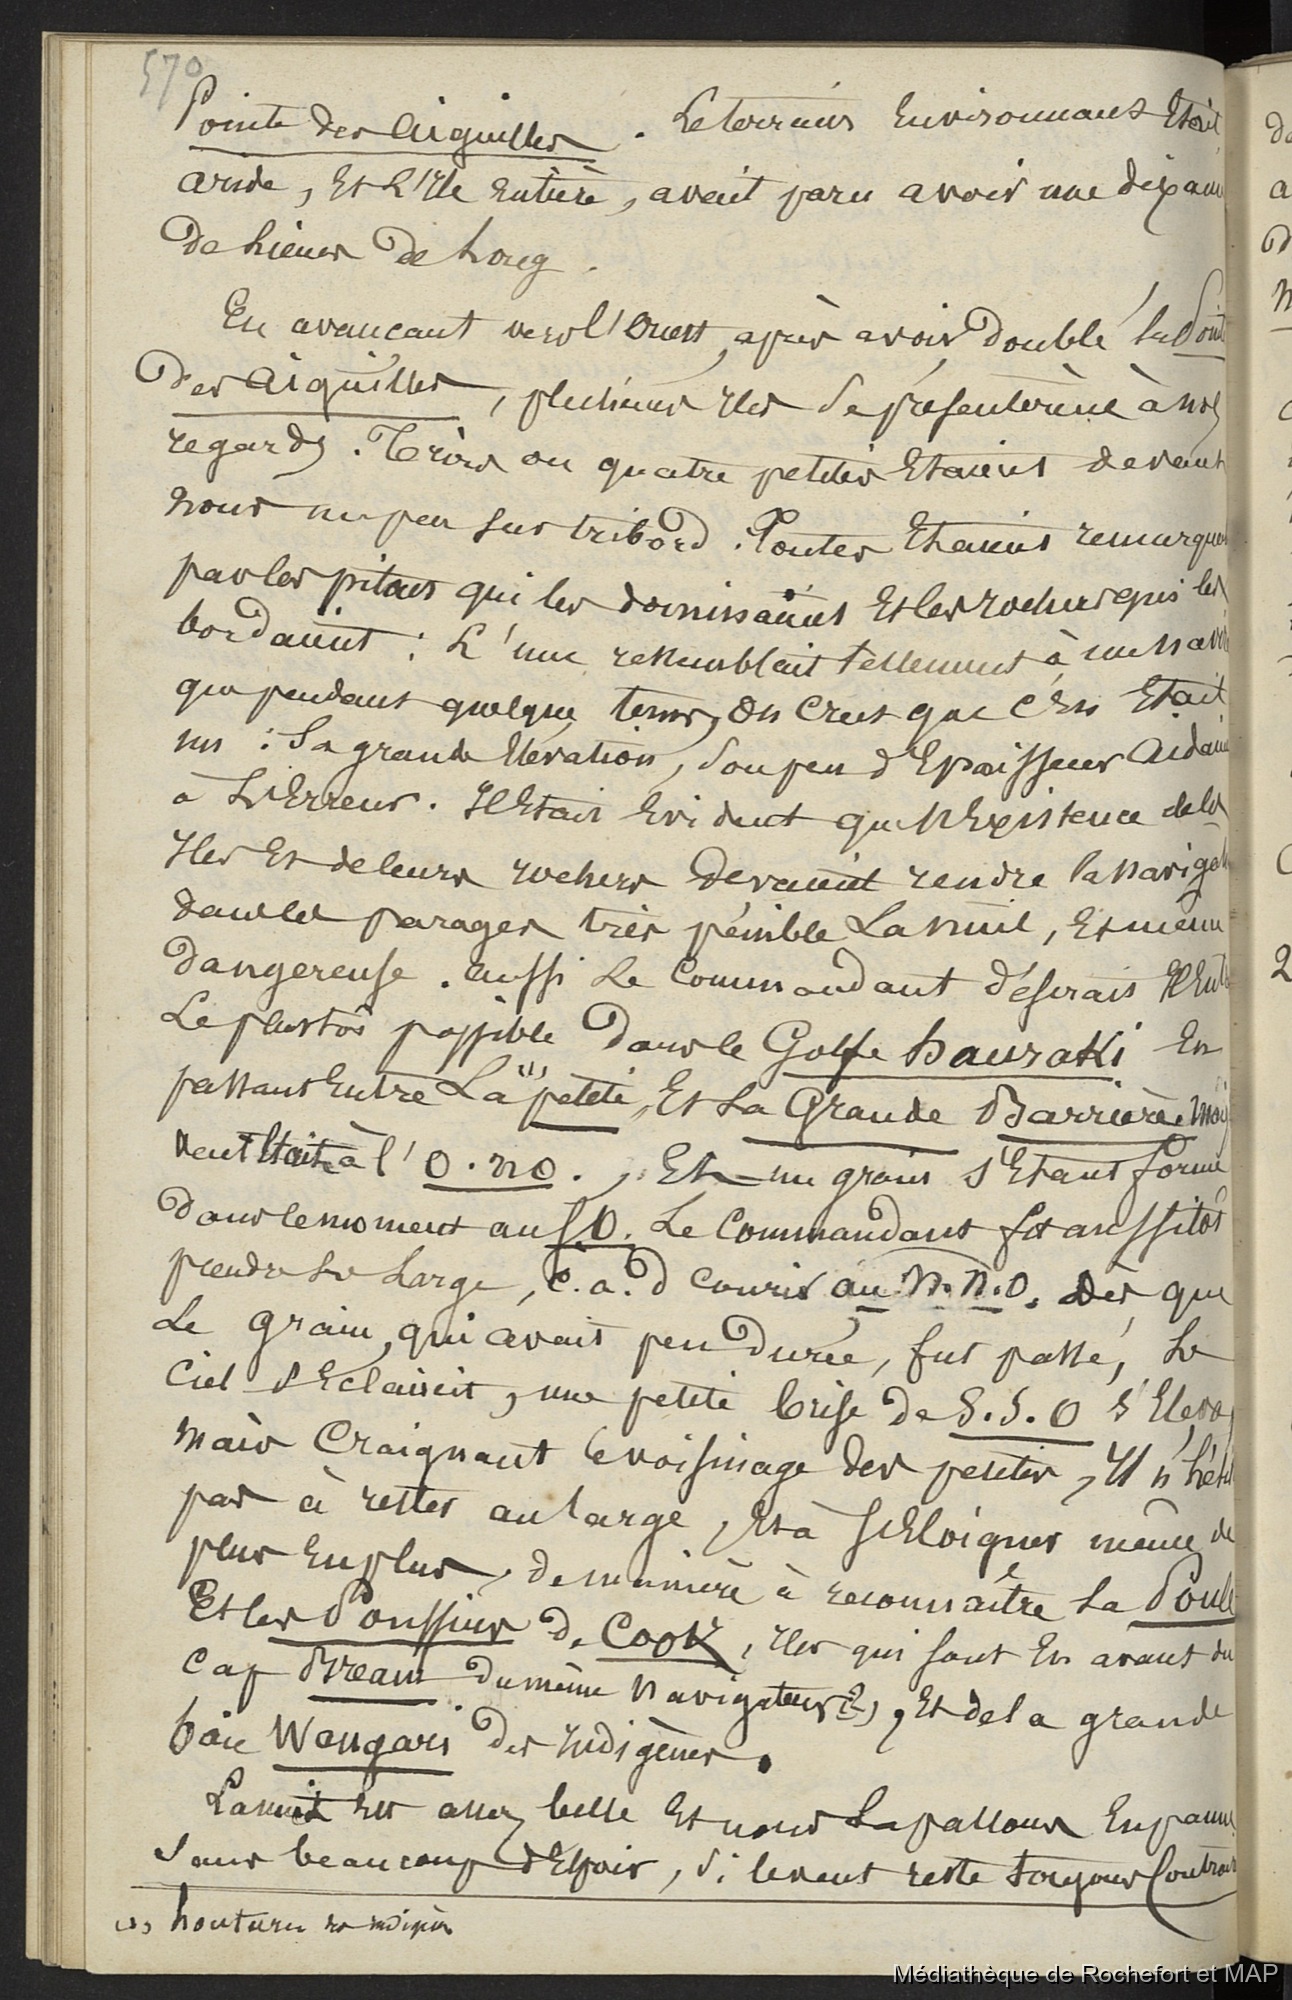 570
Pointe des Aiguilles . Le terrain Environnant Etait
aride, Et L'Ile Entière, avait paru avoir une dixaine
de Lieues de Long.
En avancant vers l'Ouest, après avoir doublé la Pointe
des Aiguilles, plusieurs Iles se présentèrent à nos
regards. Trois ou quatre petites Etaient devant
nous un peu sur tribord. Toutes Etaient remarquables
par les pitons qui les dominaient Et les rochers qui les
bordaient : L'une ressemblait tellement à un navire
que pendant quelque tems, on crut que c'En Etait
un : Sa grande Elévation, son peu d'Epaisseur Aidaient
à L'Erreur. Il Etait Evident que l'Existence de ces
Iles Et de leurs rochers devaient rendre la navigation
dans ces parages très pénible La nuit, Et même
dangereuse. aussi Le Commandant désirait Il Entrer
Le plustôt possible dans le Golfe hauraki En
passant Entre La (1) petite, Et La Grande Barrière, mais
vent Etait à l'O.no., Et un grain s'Etant formé
dans le moment au S.O. Le Commandant fit aussitôt
prendre Le Large, c.a.d Courir au N.N.O. Dès que
Le grain, qui avait peu Durée, fut passé, Le
Ciel s'Eclaircit, une petite brise de S.S.O s'Eleva,
mais Craignant le voisinage des petites, Il n'hésita
pas à rester au large, Et à s'Eloigner même de
plus En plus, de manière à reconnaître La Poule
Et les Poussins de Cook, Iles qui sont En avant du
Cap Bream du même navigateur (2), Et de la grande
baie Wangari des Indigènes.
La nuit Est assez belle Et nous La passons En panne
Sans beaucoup d'Espoir, si le vent reste toujours Contraire
(1) houturu
Médiathèque de Rochefort et MAP